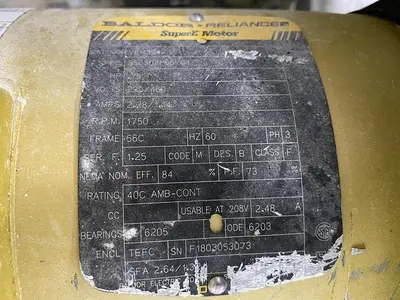 BALDOR • RELIANCE
SuperE Motor
SPEC.
HP
VOLTS 230/460
AMPS
R.P.M. 1750
FRAME 56C HZ 60 PH 3
SER. F. 1.25 CODE M DES. B CLASS F
NEMA NOM. EFF. 84 % P.F. 73 %
RATING 40C AMB-CONT
CC USABLE AT 208V 2.48 A
BEARINGS DE 6205 ODE 6203
ENCL TEFC SN F1803053073
SFA 2.64/1.3